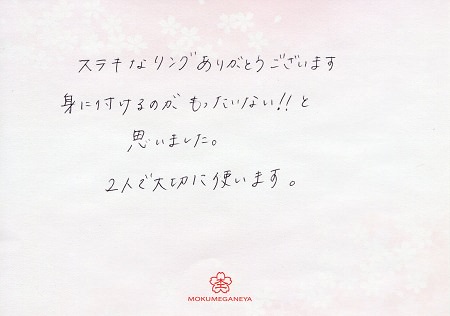 ステキなリングありがとうございます
身に付けるのがもったいない!!と
思いました。
2人で大切に使います。
MOKUMEGANEYA